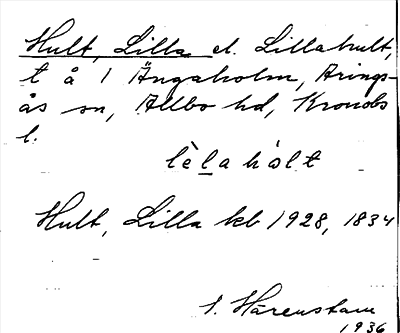 Hult, Lilla el. Lillahult,
t å 1 Ängaholm, Arings-
ås sn, Allbo hd, Kronobs
l.
lèla hȧlt
Hult, Lilla kb 1928, 1834
S. Hårenstam
1936